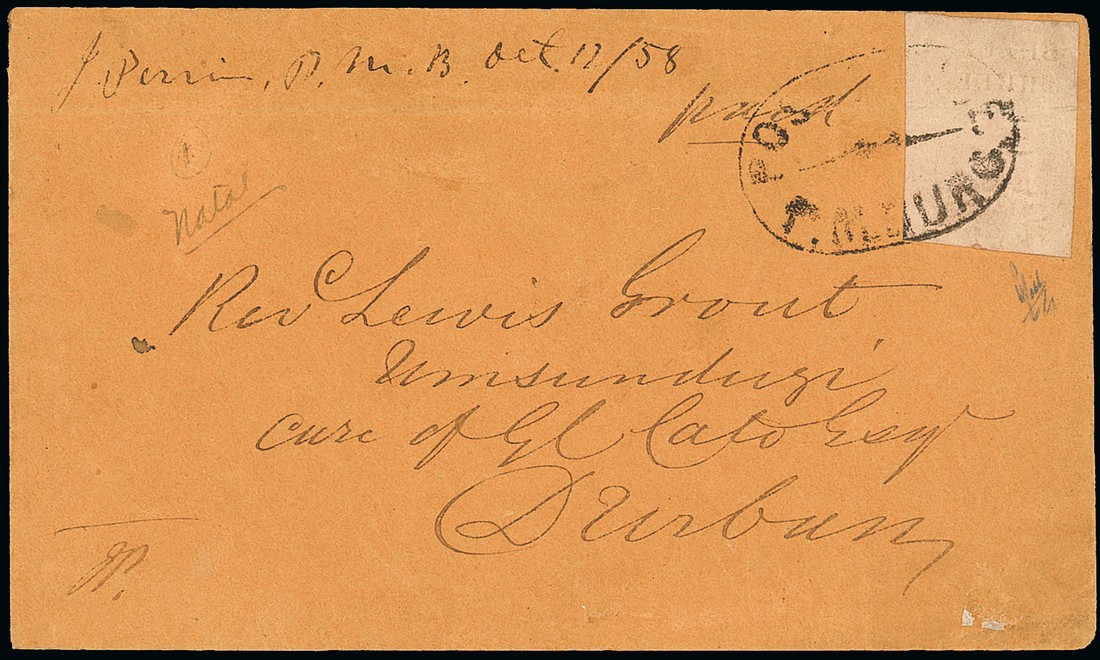 J. Perrin, P. M. B. Oct. 12/58
paid
POS
P.M.BURG
1
Natal
Rev Lewis Grout
Umsunduzi
care of G C Cato Esqr
Durban
JP.